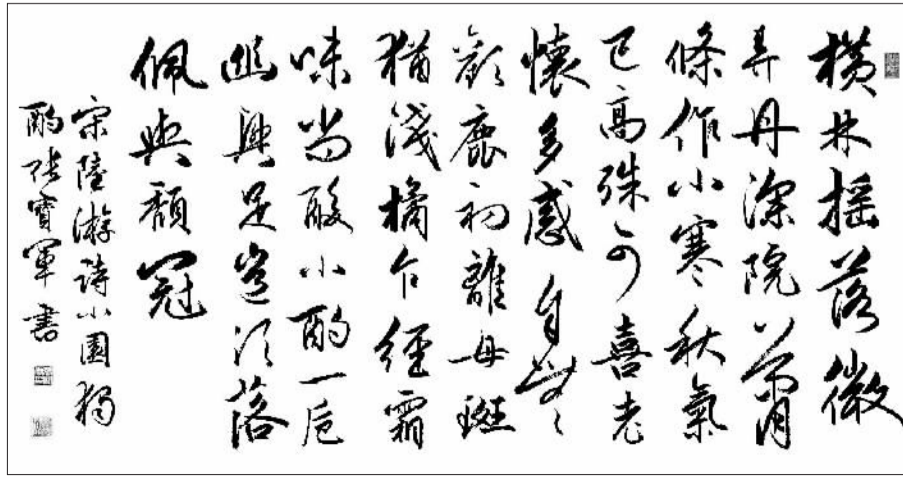 橫林搖落微
弄丹深院蕭
條作小寒秋氣
已高殊可喜老
懷多感自無
歡鹿初離母斑
猶淺橘乍經霜
味尚酸小酌一卮
幽興足豈須落
佩與頹冠
宋陸游詩小園獨
酌張寶軍書